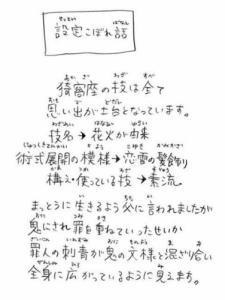 設定こぼれ話
猗窩座の技は全て
思い出が土台となっています。
技名→花火が由来
術式展開の模様→恋雪の髪飾り
構え・使っている技→素流。
まっとうに生きるよう父に言われましたが
鬼にされ罪を重ねていったせいか
罪人の刺青が鬼の文様と混ざり合い
全身に広がっているように見えます。